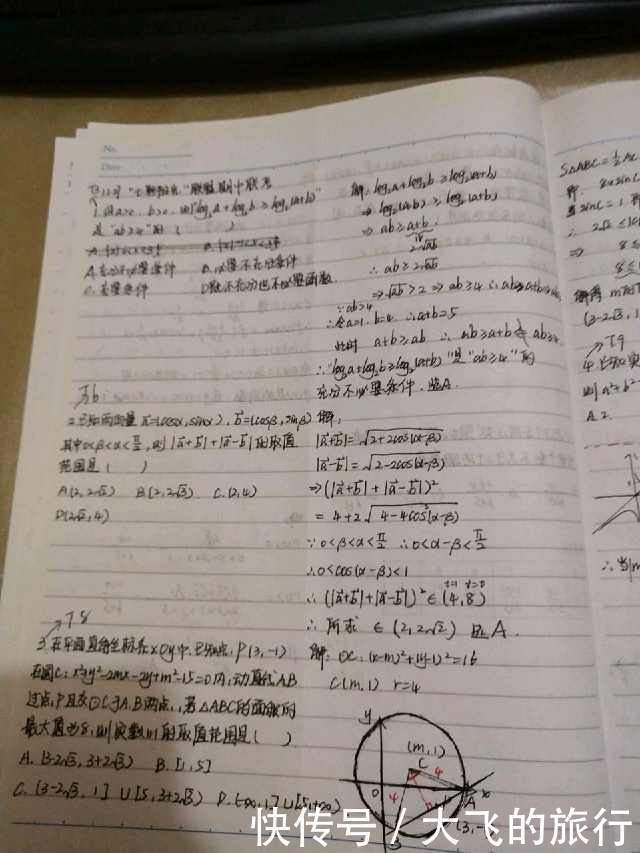 No.
Date
"七彩阳光"联盟期中联考
1. 设a>0, b>0, 则"log₂a+log₂b≥log₂(a+b)"
是"ab≥4"的 ( )
A.充分不必要条件 B.必要不充分条件
C.充要条件 D.既不充分也不必要条件
解: log₂a+log₂b≥log₂(a+b)
⇒ log₂(ab)≥log₂(a+b)
⇒ ab≥a+b
2√ab
∴ ab≥2√ab
⇒√ab≥2⇒ab≥4
∵ab≥4
∴令a=1, b=4 ∴a+b=5
此时 a+b≥ab
∴"log₂a+log₂b≥log₂(a+b)"是"ab≥4"的
充分不必要条件. 选A.
T6
2.已知两向量a=(cosα,sinα), b=(cosβ,sinβ)
其中0<β<α<π/2,则|a+b|+|a-b|的取值
范围是 ( )
A.(2,2√2) B.(2,2√3) C.(2,4)
D.(2√2,4)
解:
|a+b|=√2+2cos(α-β)
|a-b|=√2-2cos(α-β)
⇒(|a+b|+|a-b|)²
=4+2√4-4cos²(α-β)
∵0<β<α<π/2 ∴0<α-β<π/2
∴0<cos(α-β)<1
∴(|a+b|+|a-b|)²∈(4,8)
∴所求∈(2,2√2) 选A.
T8
3.在平面直角坐标系xOy中,已知点P(3,-1)
在圆C:x²+y²-2mx-2y+m²-15=0内,动直线AB
过点P且交⊙C于A.B两点,若△ABC的面积的
最大值为8,则实数m的取值范围是 ( )
A.(3-2√3,3+2√3) B.[1,5]
C.(3-2√3,1]∪[5,3+2√3) D.(-∞,1]∪[5,+∞)
解: ⊙C:(x-m)²+(y-1)²=16
C(m,1) r=4
y
(m,1)
C
4
4
O
A
x
B
S△ABC=½AC
即
sinC=1
∴
⇒
(3-2√3,1
T9
4.已知实
则a²+b²
A.2.
∴当m
快传号 / 大飞的旅行